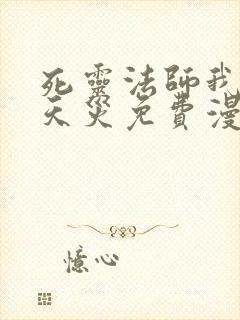 死靈法師我
天災免費漫
憶心